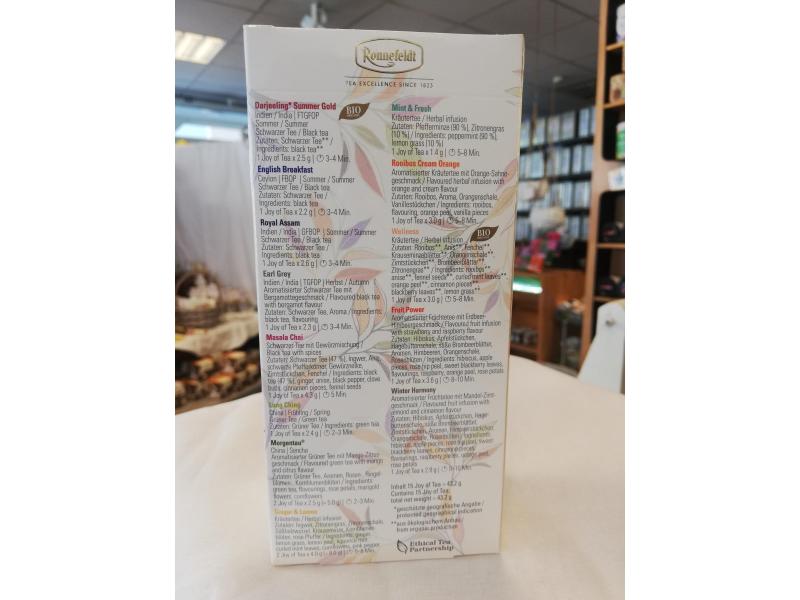 Ronnefeldt
TEA EXCELLENCE SINCE 1823
Darjeeling* Summer Gold
BIO
Indien / India | FTGFOP
Sommer / Summer
Schwarzer Tee / Black tea
Zutaten: Schwarzer Tee** /
Ingredients: black tea**
1 Joy of Tea x 2.5 g | 3–4 Min.
English Breakfast
Ceylon | FBOP | Sommer / Summer
Schwarzer Tee / Black tea
Zutaten: Schwarzer Tee /
Ingredients: black tea
1 Joy of Tea x 2.2 g | 3–4 Min.
Royal Assam
Indien / India | GFBOP | Sommer / Summer
Schwarzer Tee / Black tea
Zutaten: Schwarzer Tee /
Ingredients: black tea
1 Joy of Tea x 2.6 g | 3–4 Min.
Earl Grey
Indien / India | TGFOP | Herbst / Autumn
Aromatisierter Schwarzer Tee mit
Bergamottegeschmack / Flavoured black tea
with bergamot flavour
Zutaten: Schwarzer Tee, Aroma / Ingredients:
black tea, flavouring
1 Joy of Tea x 2.3 g | 3–4 Min.
Masala Chai
Schwarzer Tee mit Gewürzmischung /
Black tea with spices
Zutaten: Schwarzer Tee (47 %), Ingwer, Anis,
schwarze Pfefferkörner, Gewürznelke,
Zimtstückchen, Fenchel / Ingredients: black
tea (47 %), ginger, anise, black pepper, clove
buds, cinnamon pieces, fennel seeds
1 Joy of Tea x 4.3 g | 5 Min.
Lung Ching
China | Frühling / Spring
Grüner Tee / Green tea
Zutaten: Grüner Tee / Ingredients: green tea
1 Joy of Tea x 2.4 g | 2–3 Min.
Morgentau®
China | Sencha
Aromatisierter Grüner Tee mit Mango-Zitrus-
geschmack / Flavoured green tea with mango
and citrus flavour
Zutaten: Grüner Tee, Aromen, Rosen-, Ringel-
blumen-, Kornblumenblüten / Ingredients:
green tea, flavourings, rose petals, marigold
flowers, cornflowers
2 Joy of Tea x 2.5 g (= 5.0 g) | 2–3 Min.
Ginger & Lemon
Kräutertee / Herbal infusion
Zutaten: Ingwer, Zitronengras, Zitronenschale,
Süßholzwurzel, Krauseminze, Kornblumen-
blüten, rosa Pfeffer / Ingredients: ginger,
lemon grass, lemon peel, liquorice root,
curled mint leaves, cornflowers, pink pepper
Mint & Fresh
Kräutertee / Herbal infusion
Zutaten: Pfefferminze (90 %), Zitronengras
(10 %) / Ingredients: peppermint (90 %),
lemon grass (10 %)
1 Joy of Tea x 1.4 g | 5–8 Min.
Rooibos Cream Orange
Aromatisierter Kräutertee mit Orange-Sahne-
geschmack / Flavoured herbal infusion with
orange and cream flavour
Zutaten: Rooibos, Aroma, Orangenschale,
Vanillestückchen / Ingredients: rooibos,
flavouring, orange peel, vanilla pieces
1 Joy of Tea x 3.0 g | 5–8 Min.
Wellness
BIO
Kräutertee / Herbal infusion
Zutaten: Rooibos**, Anis**, Fenchel**,
Krauseminzblätter**, Orangenschale**,
Zimtstückchen**, Brombeerblätter**,
Zitronengras** / Ingredients: rooibos**,
anise**, fennel seeds**, curled mint leaves**,
orange peel**, cinnamon pieces**,
blackberry leaves**, lemon grass**
1 Joy of Tea x 3.0 g | 5–8 Min.
Fruit Power
Aromatisierter Früchtetee mit Erdbeer-
Himbeergeschmack / Flavoured fruit infusion
with strawberry and raspberry flavour
Zutaten: Hibiskus, Apfelstückchen,
Hagebuttenschale, süße Brombeerblätter,
Aromen, Himbeeren, Orangenschale,
Rosenblüten / Ingredients: hibiscus, apple
pieces, rose hip peel, sweet blackberry leaves,
flavourings, raspberry, orange peel, rose petals
1 Joy of Tea x 3.6 g | 8–10 Min.
Winter Harmony
Aromatisierter Früchtetee mit Mandel-Zimt-
geschmack / Flavoured fruit infusion with
almond and cinnamon flavour
Zutaten: Hibiskus, Apfelstückchen, Hage-
buttenschale, süße Brombeerblätter,
Zimtstückchen, Aromen,
Orangenschale, Rosenblüten / Ingredients:
hibiscus, apple pieces, rose hip peel, sweet
blackberry leaves, cinnamon pieces,
flavourings, orange peel,
rose petals
1 Joy of Tea x 2.9 g | 8–10 Min.
Inhalt 15 Joy of Tea – 43.2 g
Contains 15 Joy of Tea,
total net weight – 43.2 g
*geschützte geografische Angabe /
protected geographical indication
**aus ökologischem Anbau
from organic production
Ethical Tea
Partnership